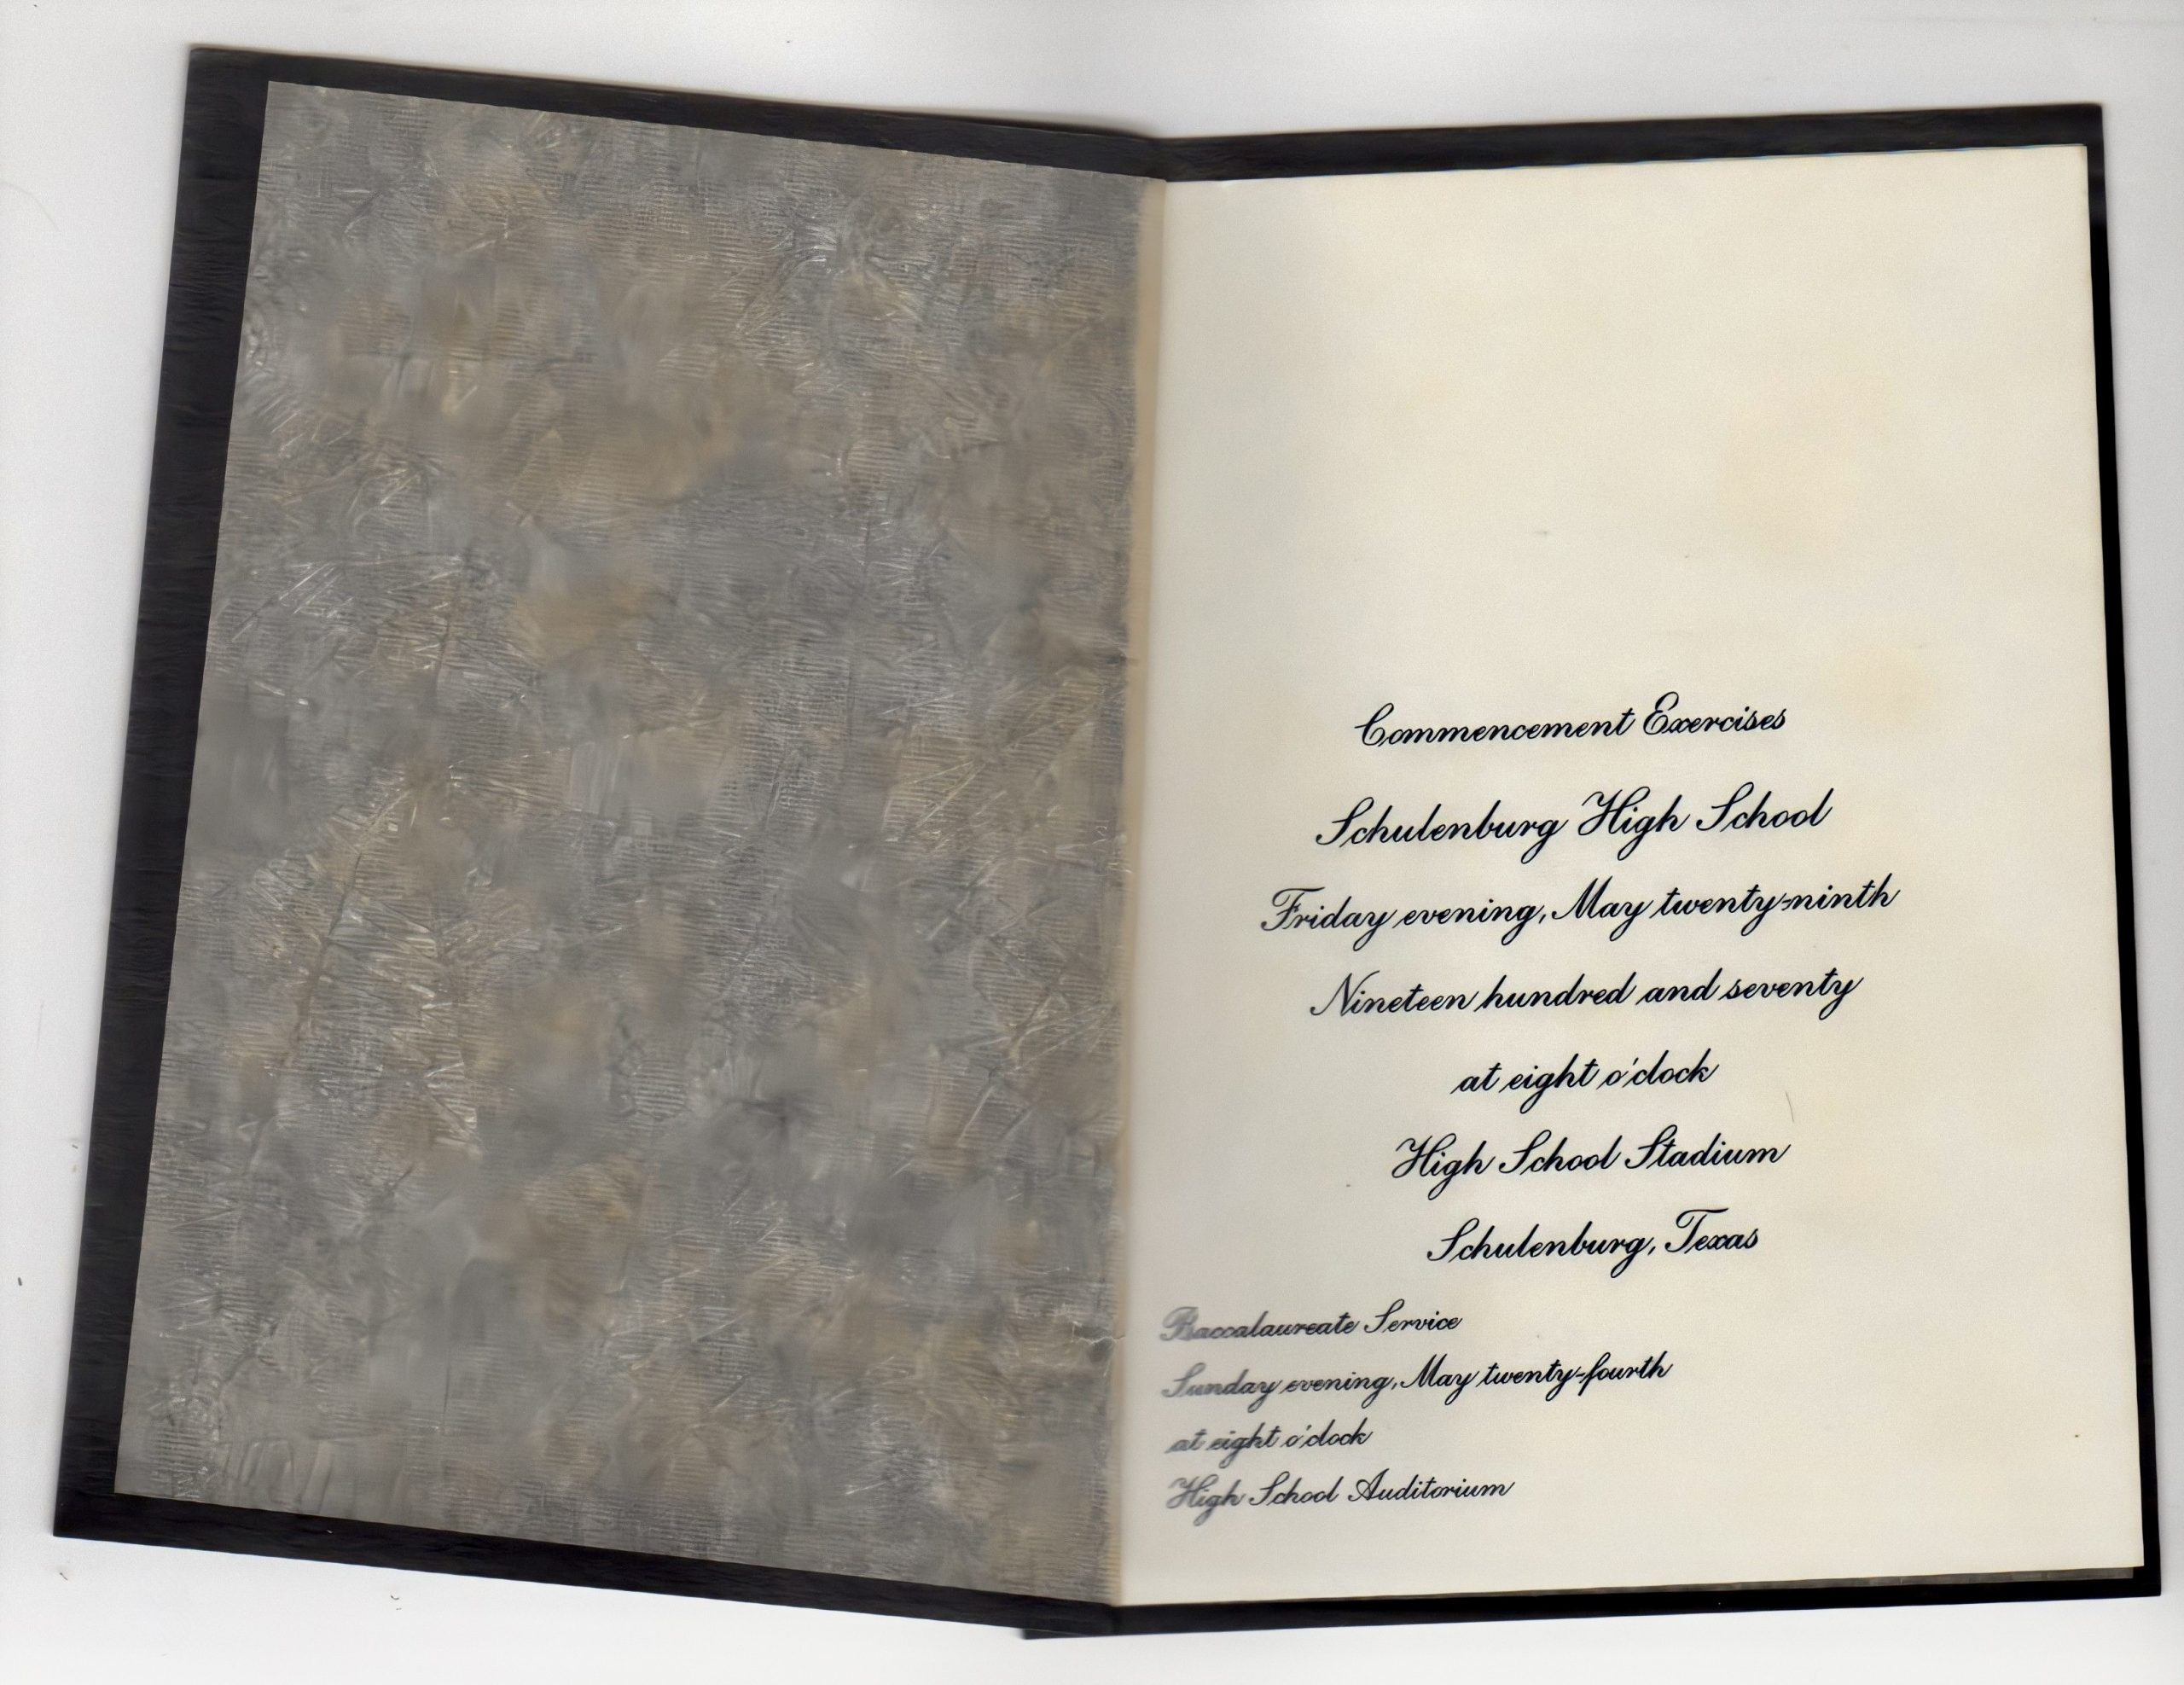 Commencement Exercises
Schulenburg High School
Friday evening, May twenty-ninth
Nineteen hundred and seventy
at eight o'clock
High School Stadium
Schulenburg, Texas
Baccalaureate Service
Sunday evening, May twenty-fourth
at eight o'clock
High School Auditorium